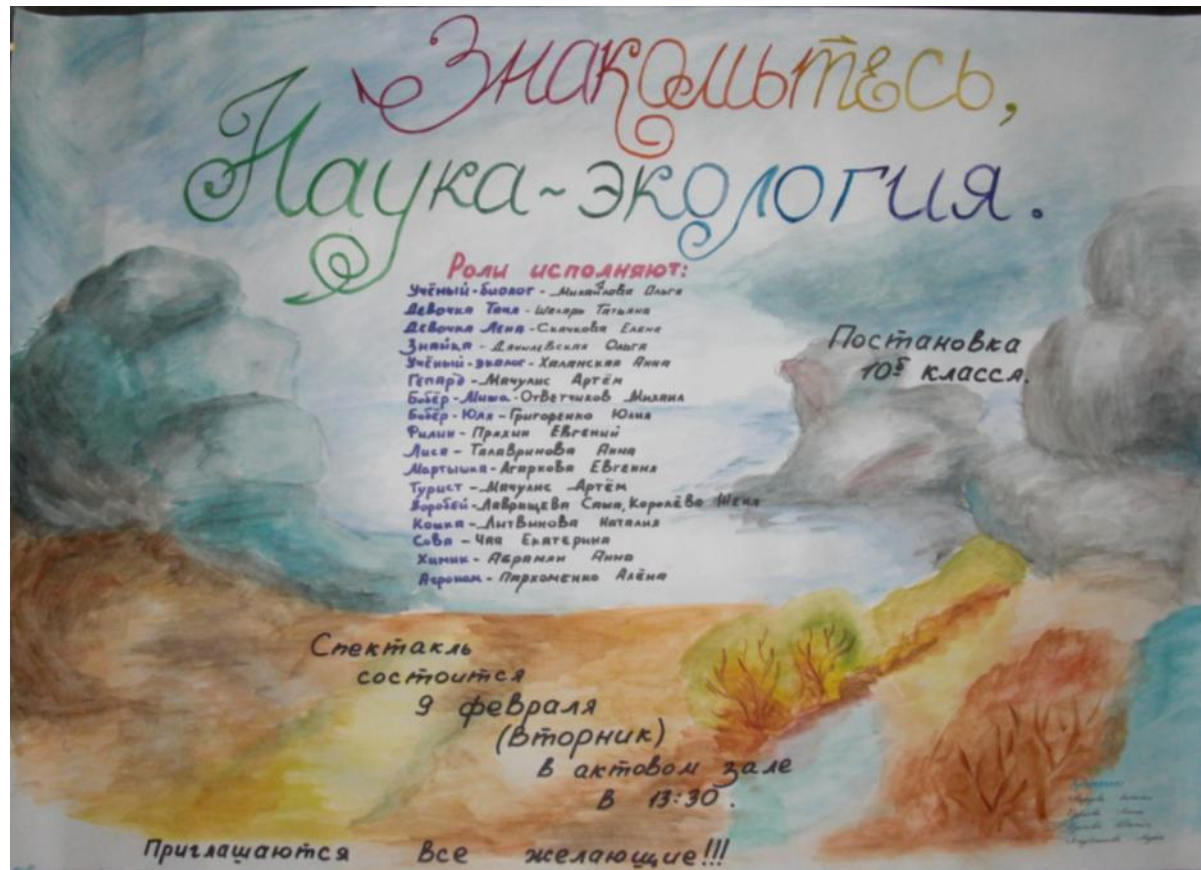 Знакомьтесь,
Наука-экология.
Роли исполняют:
Учёный-биолог - Михайлова Ольга
Девочка Таня - Шаларь Татьяна
Девочка Лена - Скачкова Елена
Знайка - Данилевская Ольга
Учёный-эколог - Халанская Анна
Гепард - Мачулис Артём
Бобёр-Миша - Ответчиков Михаил
Бобёр-Юля - Григоренко Юлия
Филин - Пряхин Евгений
Лиса - Талавринова Анна
Мартышка - Агаркова Евгения
Турист - Мачулис Артём
Воробей - Лаврищева Саша, Королёва Женя
Кошка - Литвинова Наталия
Сова - Чая Екатерина
Химик - Абрамян Анна
Агроном - Пархоменко Алёна
Постановка
10Б класса.
Спектакль
состоится
9 февраля
(вторник)
в актовом зале
в 13:30.
Приглашаются все желающие!!!